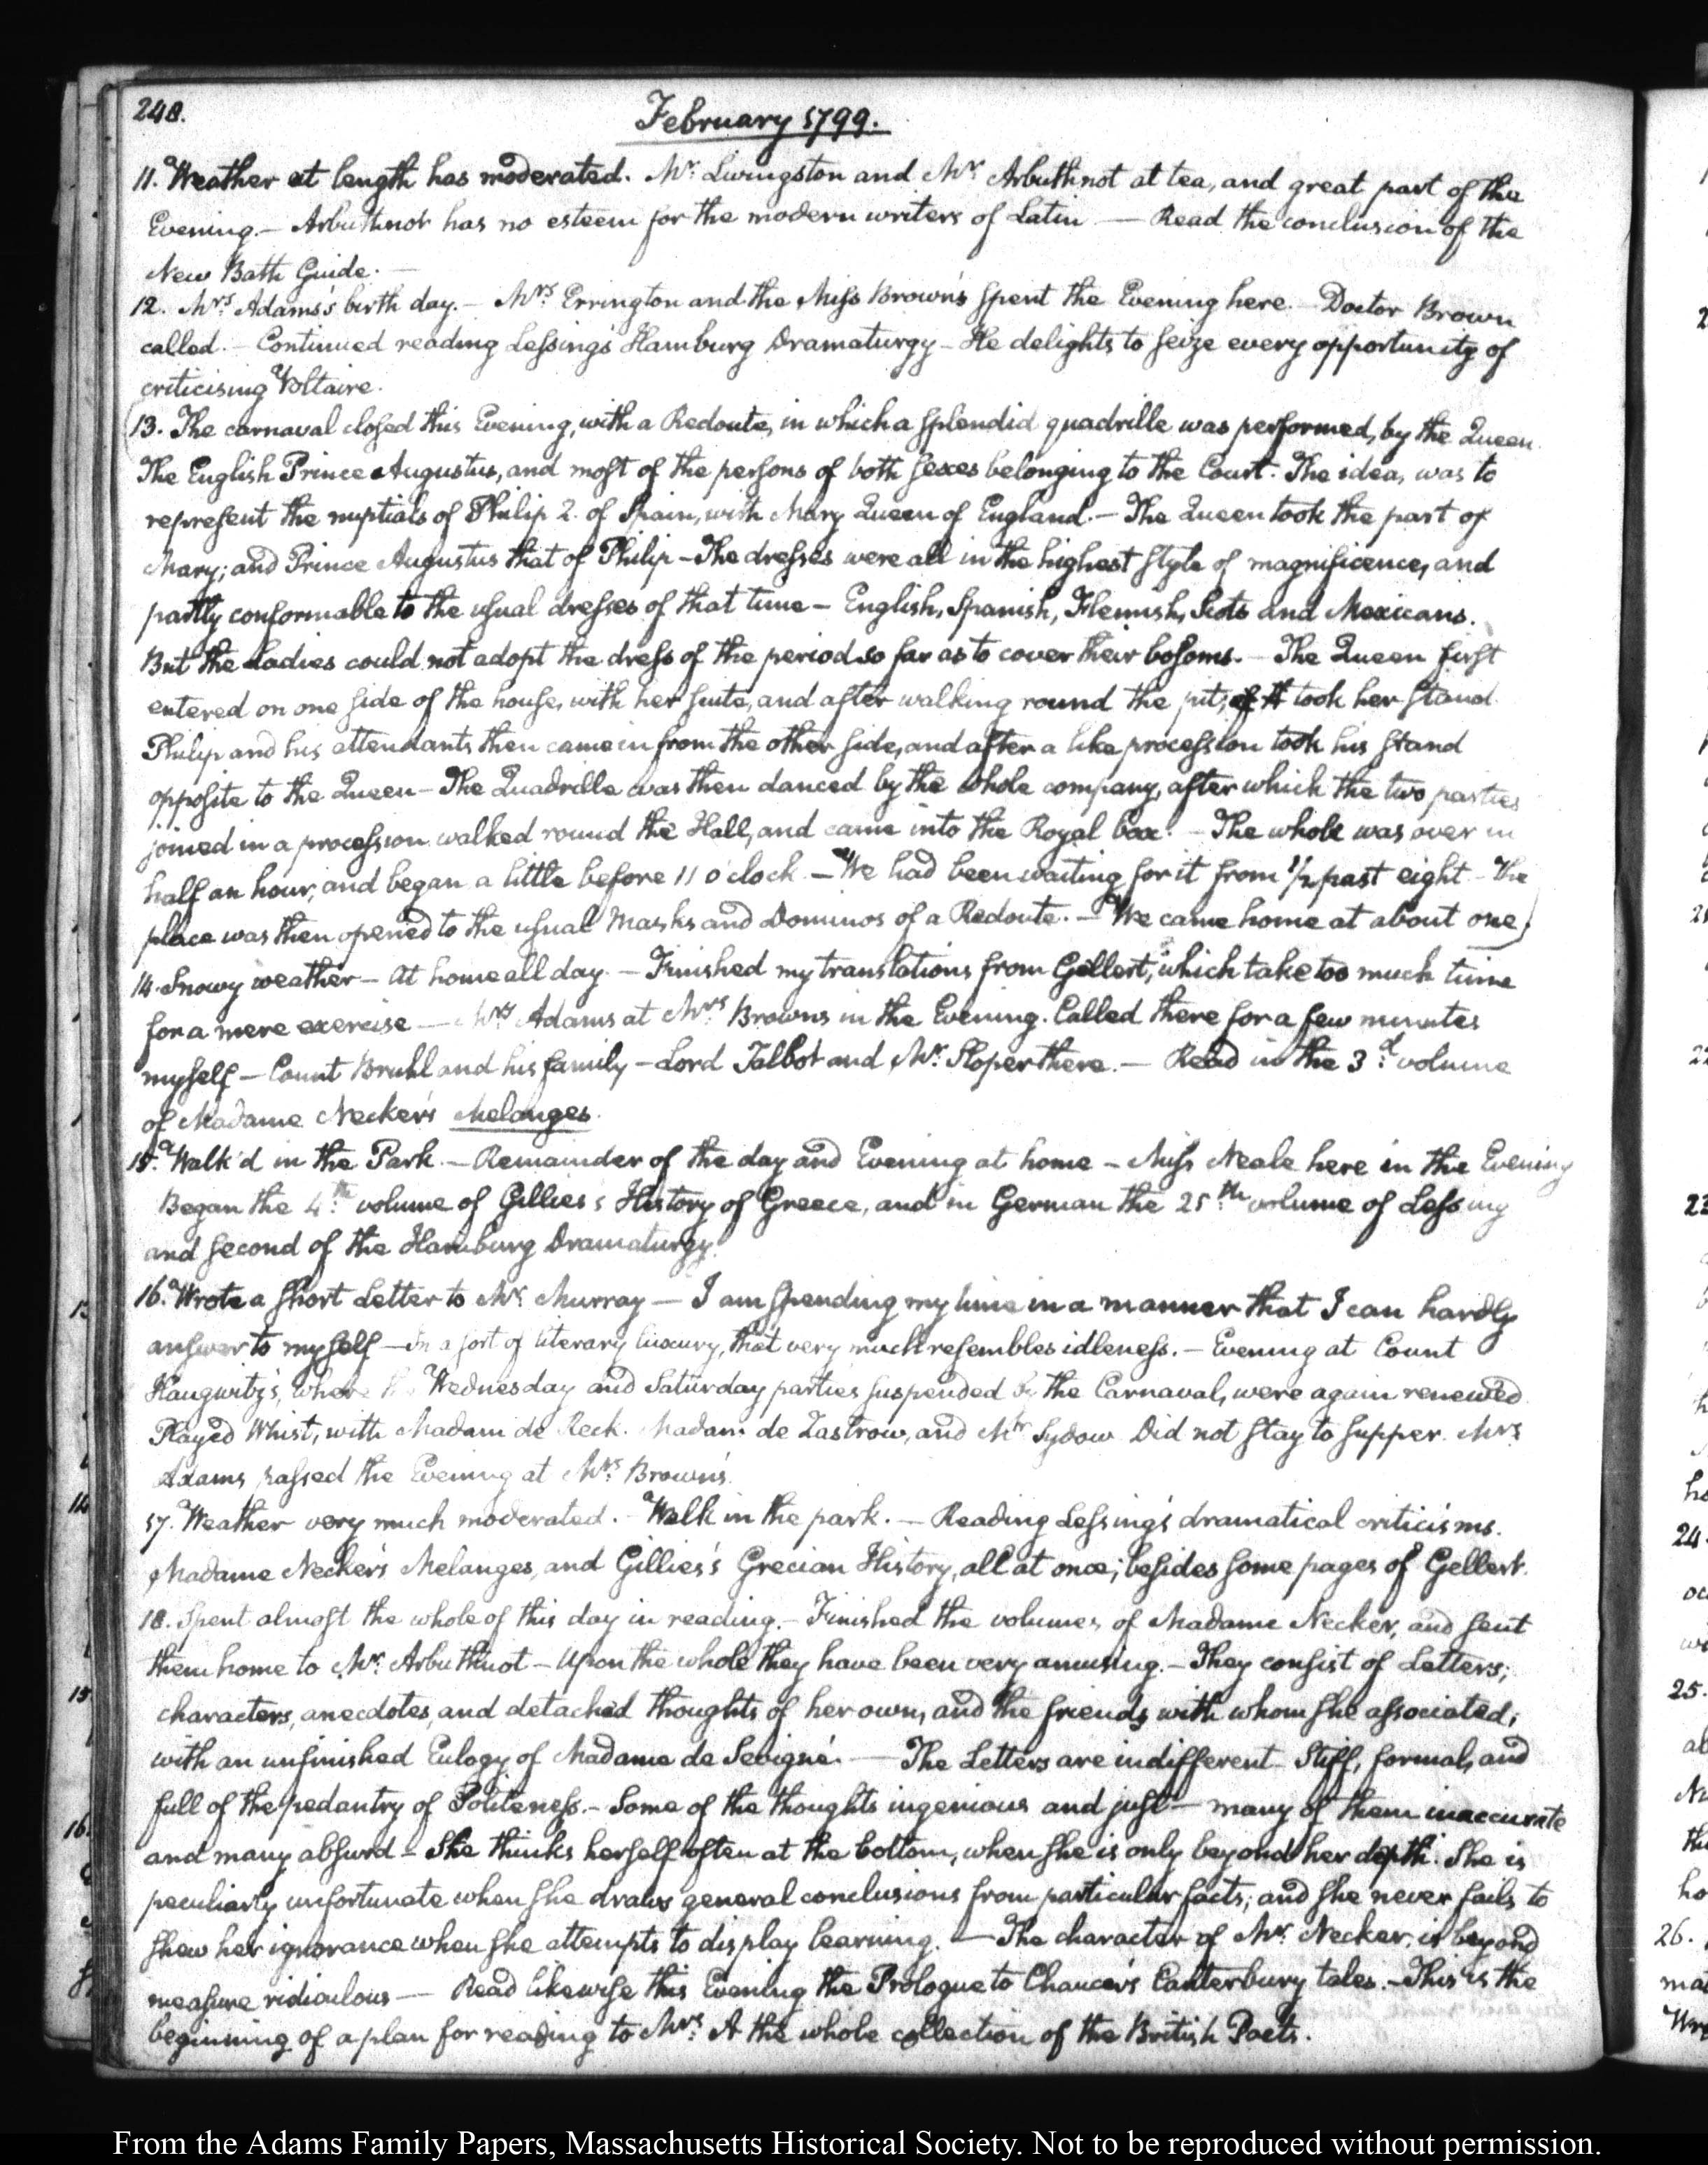 248.
February 1799.
11. Weather at length has moderated. Mr. Livingston and Mr. Arbuthnot at tea, and great part of the
Evening.— Arbuthnot has no esteem for the modern writers of Latin — Read the conclusion of the
New Bath Guide. —
12. Mrs. Adams's birth day.— Mrs. Errington and the Miss Brown's spent the Evening here. Doctor Brown
called.— Continued reading Lessing's Hamburg Dramaturgy— He delights to seize every opportunity of
criticising Voltaire.
13. The carnaval closed this Evening, with a Redoute, in which a splendid quadrille was performed, by the Queen
The English Prince Augustus, and most of the persons of both sexes belonging to the Court. The idea, was to
represent the nuptials of Philip 2. of Spain, with Mary Queen of England.— The Queen took the part of
Mary; and Prince Augustus that of Philip— The dresses were all in the highest style of magnificence, and
partly conformable to the usual dresses of that time— English, Spanish, Flemish, Scots and Mexicans.
But the Ladies could not adopt the dress of the period so far as to cover their bosoms.— The Queen first
entered on one side of the house, with her suite, and after walking round the pit, took her stand
Philip and his attendants then came in from the other side, and after a like procession took his stand
opposite to the Queen— The Quadrille was then danced by the whole company, after which the two parties
joined in a procession walked round the Hall, and came into the Royal box.— The whole was over in
half an hour, and began a little before 11 o'clock— We had been waiting for it from 1/2 past eight— The
place was then opened to the usual Masks and Dominos of a Redoute.— We came home at about one
14. Snowy weather— At home all day.— Finished my translations from Gellert, which take too much time
for a mere exercise— Mrs. Adams at Mrs. Browns in the Evening. Called there for a few minutes
myself— Count Bruhl and his family— Lord Talbot and Mr. Sloper there.— Read in the 3d. volume
of Madame Necker's Melanges.
15. Walk'd in the Park.— Remainder of the day and Evening at home— Miss Neale here in the Evening
Began the 4th. volume of Gillies's History of Greece, and in German the 25th volume of Lessing
and second of the Hamburg Dramaturgy.
16. Wrote a short Letter to Mr. Murray— I am spending my time in a manner that I can hardly
answer to myself— In a sort of literary luxury, that very much resembles idleness.— Evening at Count
Haugwitz's, where the Wednesday and Saturday parties suspended by the Carnaval, were again renewed
Played Whist, with Madam de Reck. Madam de Zastrow, and Mr. Sydow Did not stay to supper. Mrs.
Adams passed the Evening at Mrs. Brown's.
17. Weather very much moderated.— Walk in the park.— Reading Lessing's dramatical criticisms.
Madame Necker's Melanges, and Gillies's Grecian History, all at once; besides some pages of Gellert.
18. Spent almost the whole of this day in reading.— Finished the volumes of Madame Necker, and sent
them home to Mr. Arbuthnot— Upon the whole they have been very amusing.— They consist of Letters;
characters, anecdotes, and detached thoughts of her own, and the friends with whom she associated;
with an unfinished Eulogy of Madame de Sevigné.— The Letters are indifferent Stiff, formal, and
full of the pedantry of Politeness.— Some of the thoughts ingenious and just— many of them inaccurate
and many absurd— She thinks herself often at the bottom, when she is only beyond her depth. She is
peculiarly unfortunate when she draws general conclusions from particular facts; and she never fails to
shew her ignorance when she attempts to display learning.— The character of Mr. Necker, is beyond
measure ridiculous— Read likewise this Evening the Prologue to Chaucer's Canterbury tales.— This is the
beginning of a plan for reading to Mrs. A the whole collection of the British Poets.
From the Adams Family Papers, Massachusetts Historical Society. Not to be reproduced without permission.